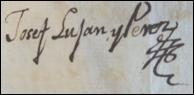 Josef Lujan y Perez